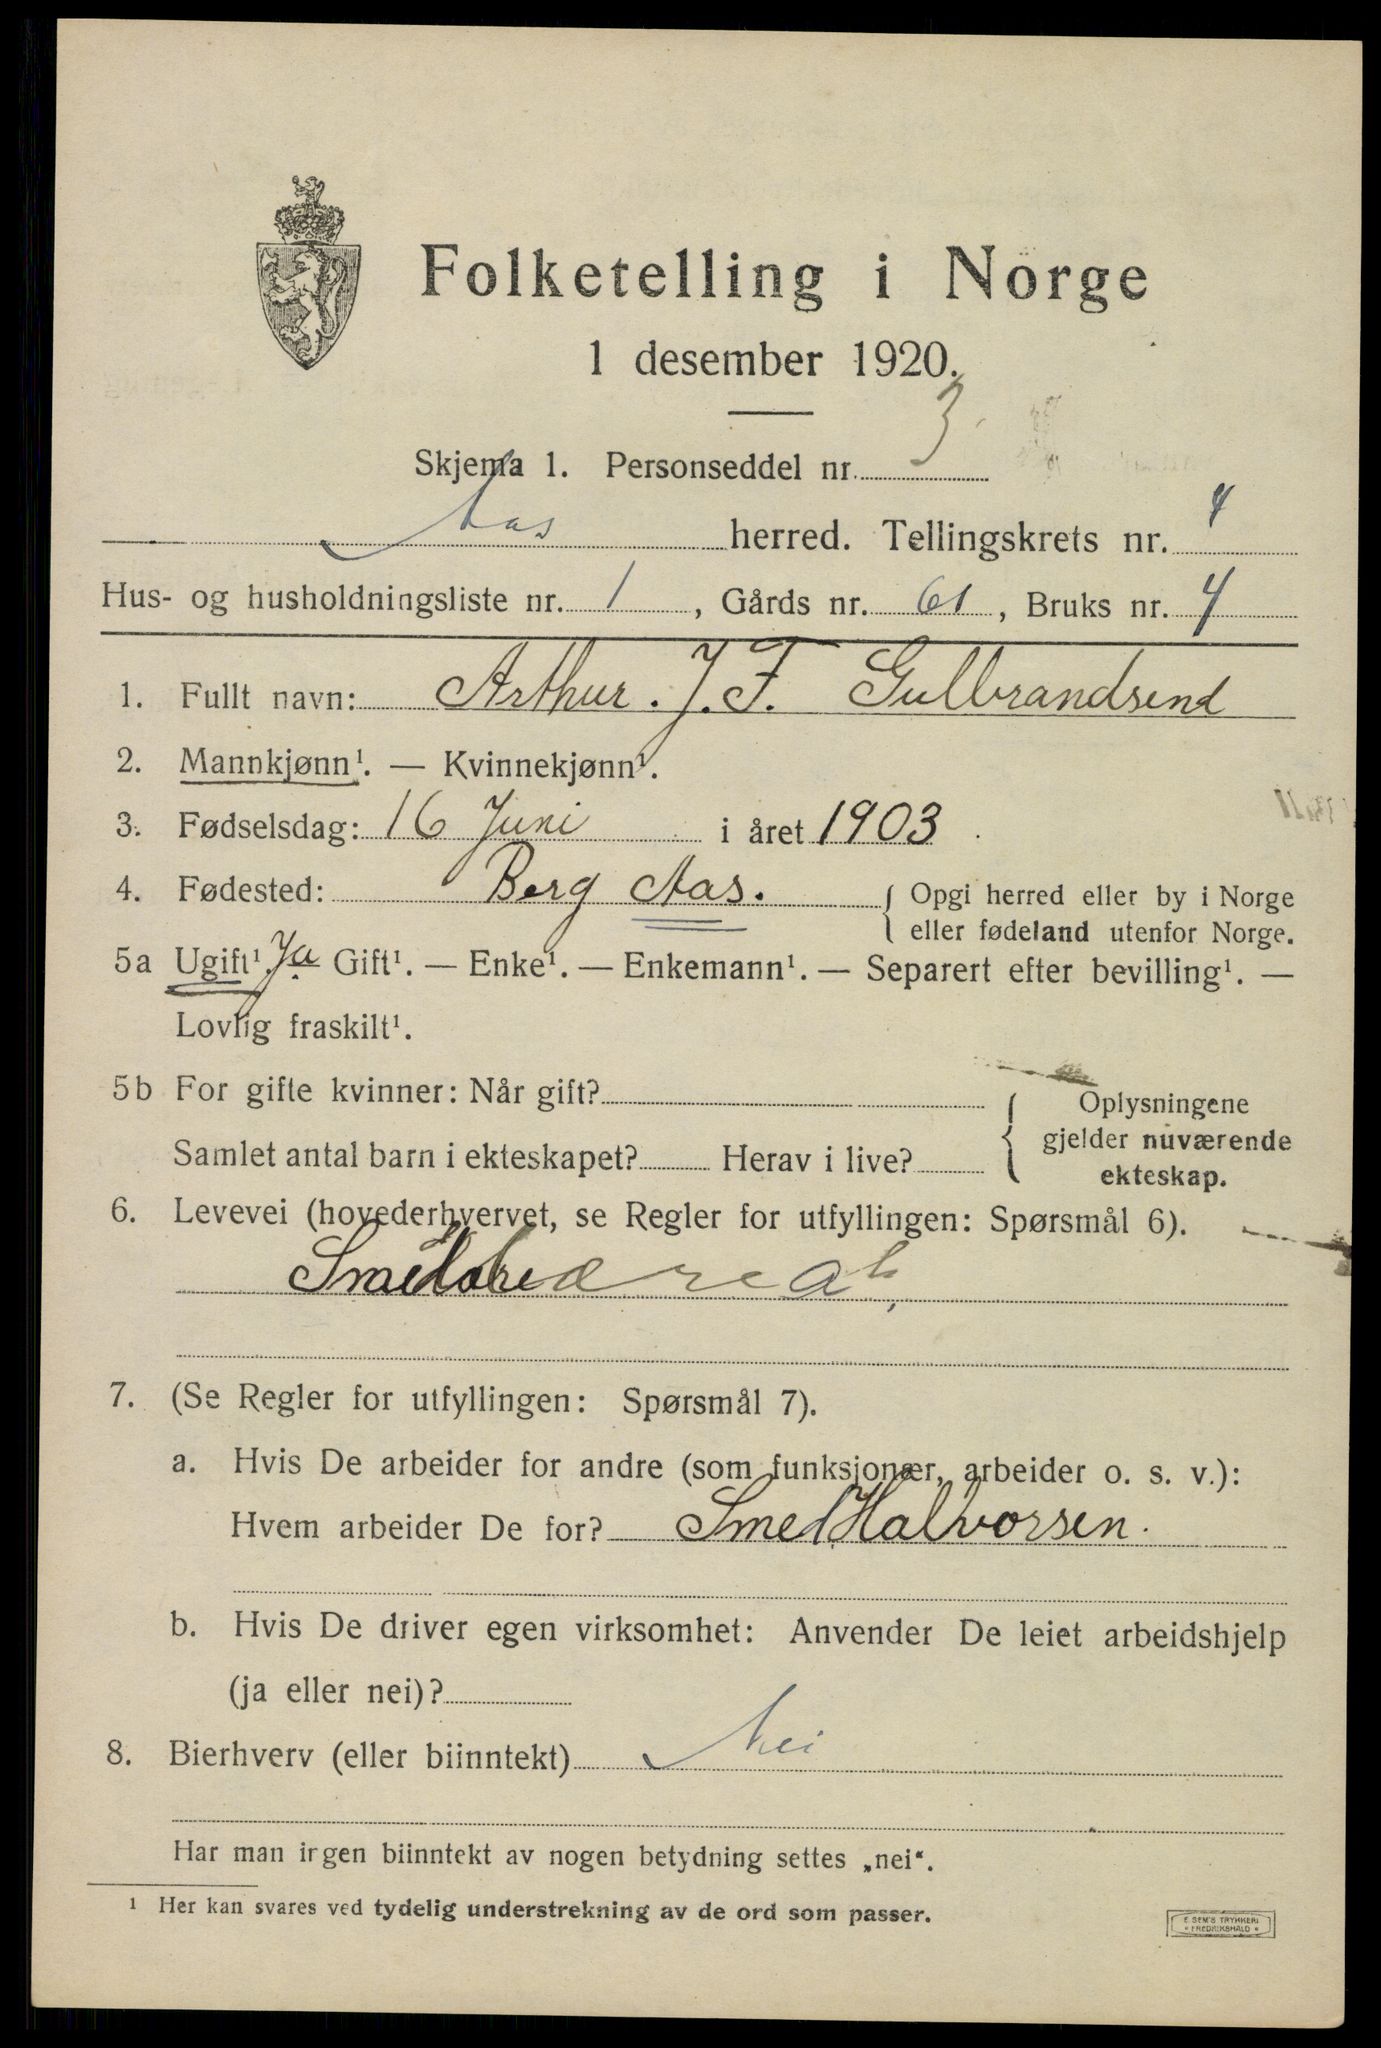 Folketelling i Norge
1 desember 1920.
Skjema 1. Personseddel nr. 3
Aas herred. Tellingskrets nr. 4
Hus- og husholdningsliste nr. 1, Gårds nr. 61, Bruks nr. 4
1. Fullt navn: Arthur. J. F. Gulbrandsend
2. Mannkjønn¹. — Kvinnekjønn¹.
3. Fødselsdag: 16 Juni i året 1903.
4. Fødested: Berg Aas. { Opgi herred eller by i Norge
eller fødeland utenfor Norge.
5a Ugift¹. Ja Gift¹. — Enke¹. — Enkemann¹. — Separert efter bevilling¹. —
Lovlig fraskilt¹.
5b For gifte kvinner: Når gift? { Oplysningene
gjelder nuværende
ekteskap.
Samlet antal barn i ekteskapet? Herav i live?
6. Levevei (hovederhvervet, se Regler for utfyllingen: Spørsmål 6).
7. (Se Regler for utfyllingen: Spørsmål 7).
a. Hvis De arbeider for andre (som funksjonær, arbeider o. s. v.):
Hvem arbeider De for? Smed Halvorsen.
b. Hvis De driver egen virksomhet: Anvender De leiet arbeidshjelp
(ja eller nei)?
8. Bierhverv (eller biinntekt) Nei
Har man irgen biinntekt av nogen betydning settes „nei“.
¹ Her kan svares ved tydelig understrekning av de ord som passer.
E. SEM'S TRYKKERI
• FREDRIKSHALD •